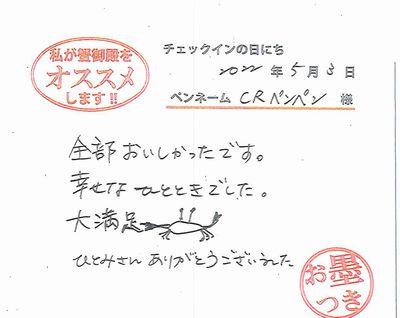 私が蟹御殿を
オススメ
します!!
チェックインの日にち
2022年5月3日
ペンネーム CRペンペン 様
全部おいしかったです。
幸せなひとときでした。
大満足
ひとみさんありがとうございました
お墨
つき